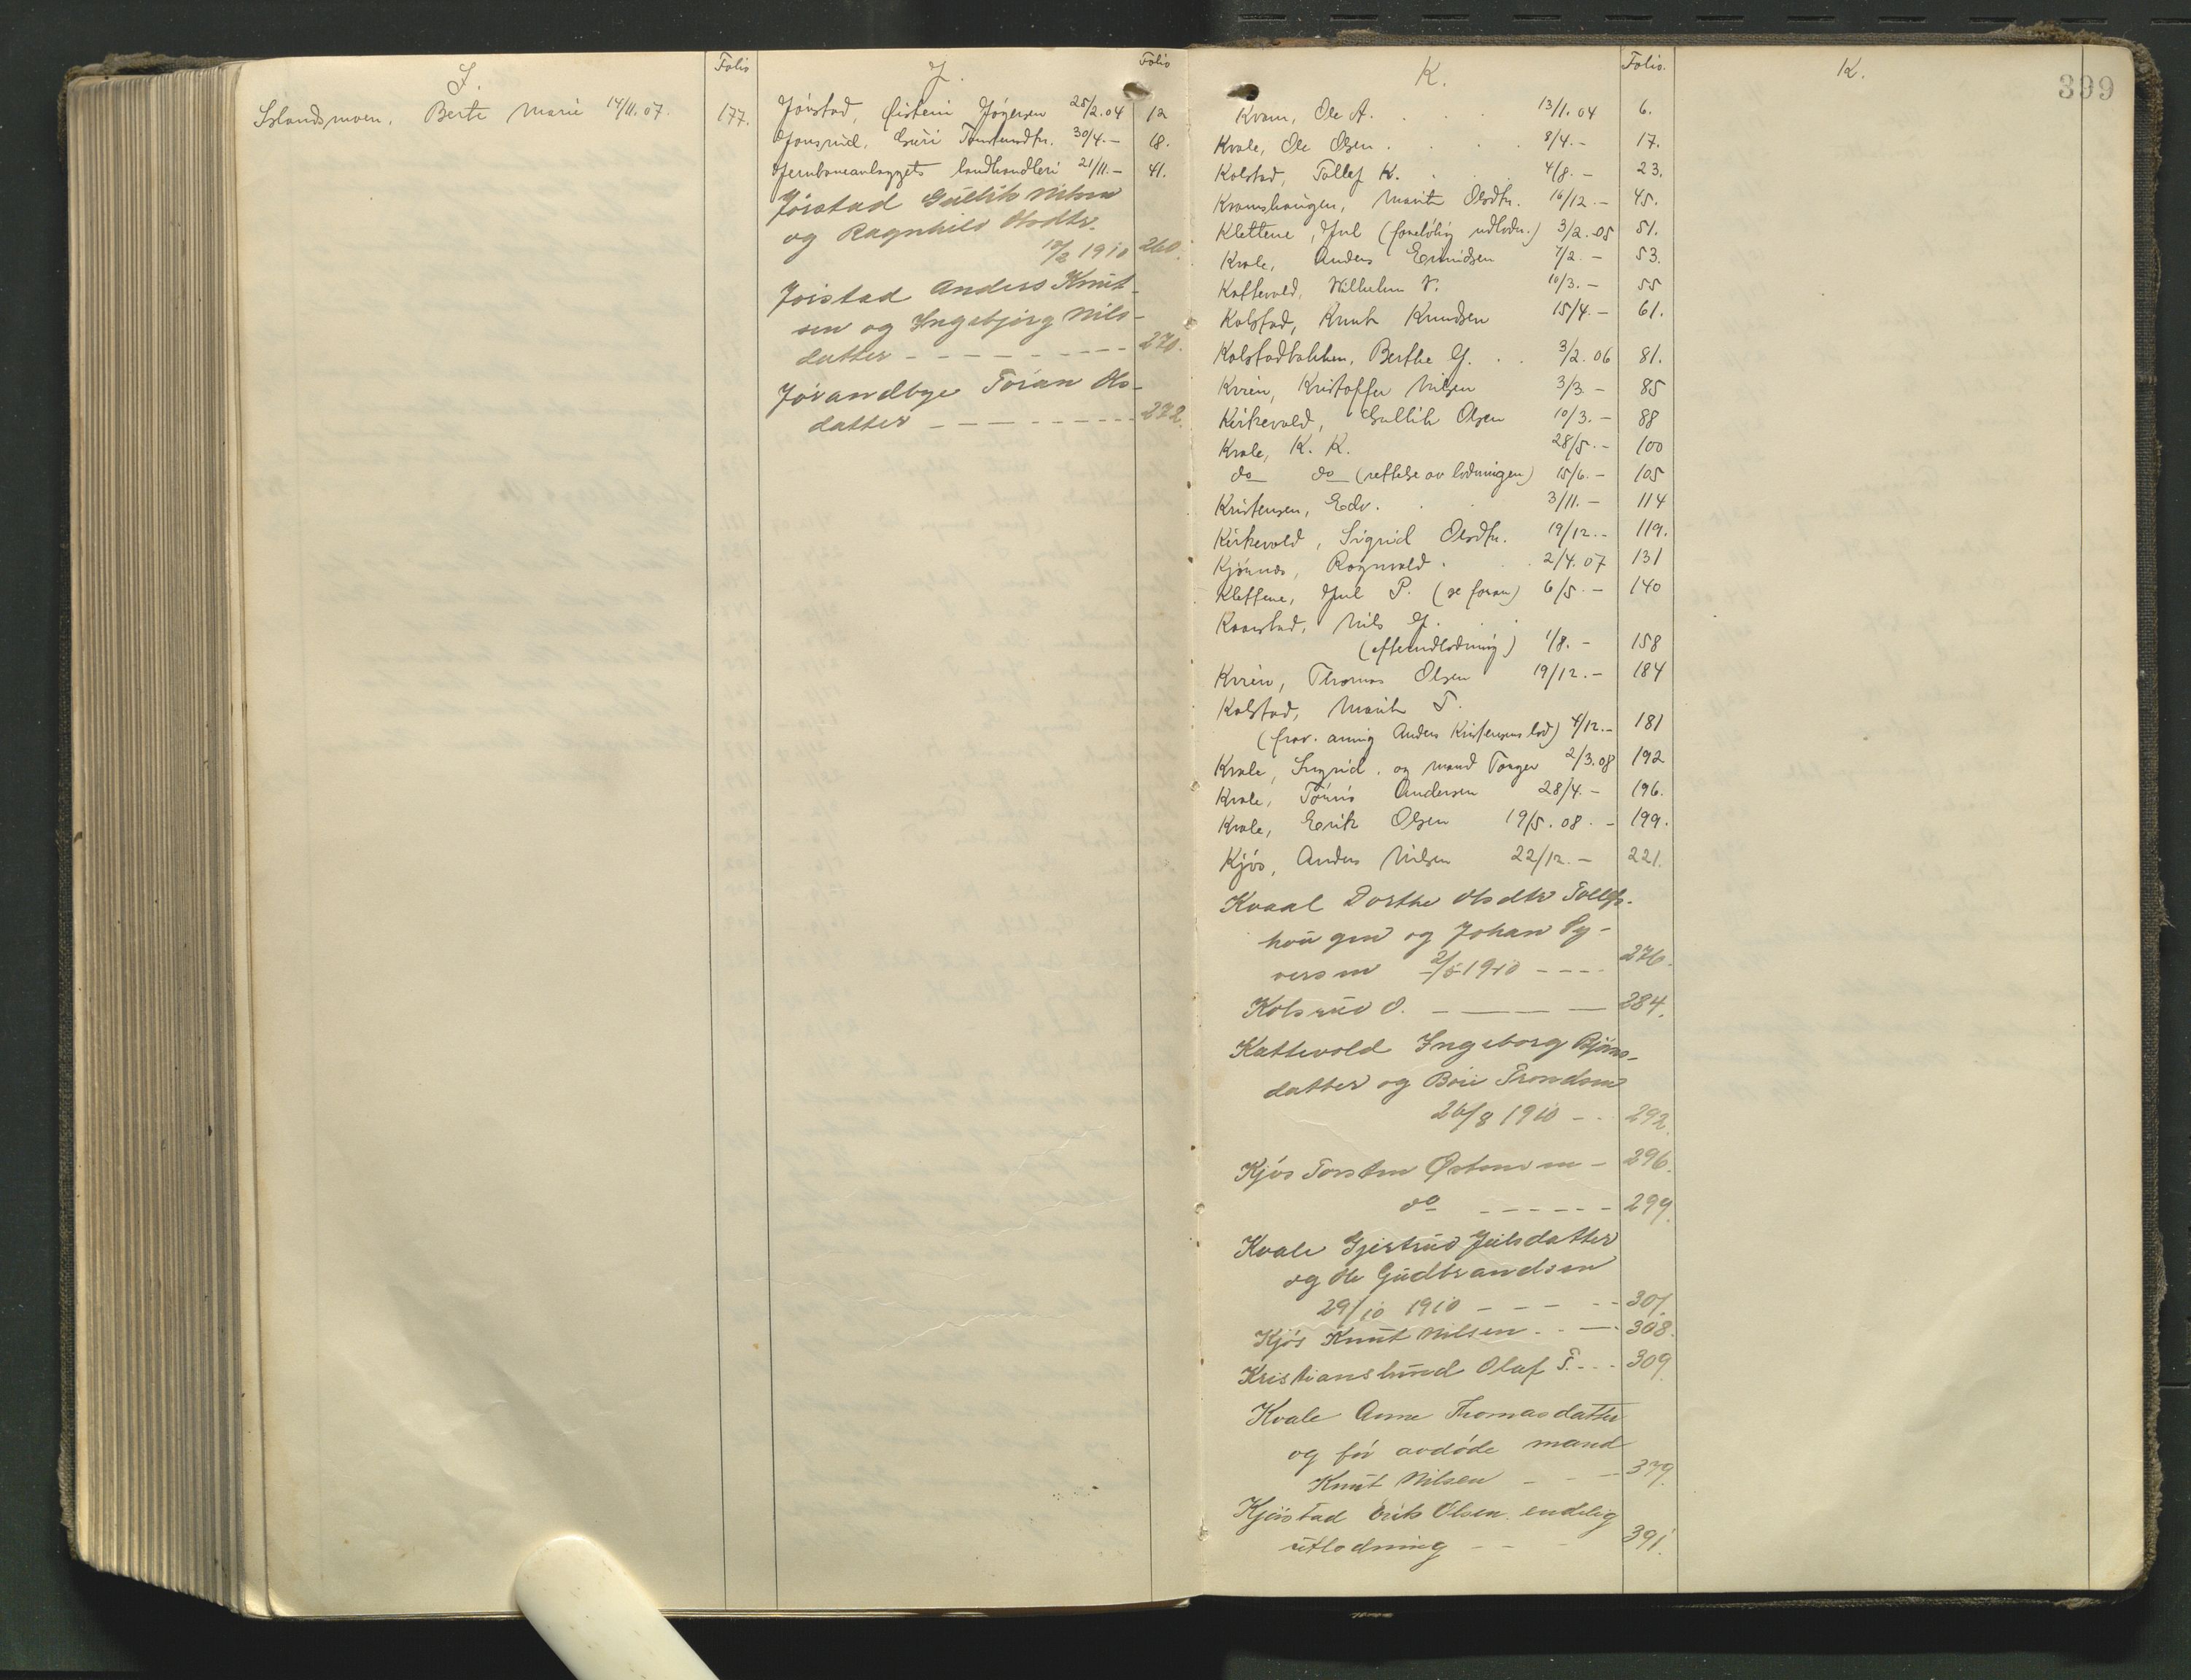 I. Folio
Islandsmoen, Berte Marie 14/11.07. 177.
J. Folio
Jörstad, Östein Jögersen 25/2.04 12
Jonsrud, Guri Tomtundtr. 30/4.– 18.
Jernbaneanlæggets landhandleri 21/11.– 41.
Jörstad Gullik Nilsen
og Ragnhild Olsdtr.
1910 260.
Jörstad Anders Knut-
sen og Ingebjörg Nils-
datter – – – – – – – – 270.
Jörandbye Töran Ols-
datter – – – – – – – – 272.
K. Folio.
Kvam, Ole A. 13/1.04 6.
Kvale, Ole Olsen 8/4.– 17.
Kolstad, Tollef K. 4/8.– 23.
Kramshaugen, Marit Olsdtr. 16/12.– 45.
Klettene, Jul (foreløbig udlodn.) 3/2.05 51.
Kvale, Anders Ermidsen 7/2.– 53.
Kattevold, Vilhelm V. 10/3.– 55
Kolstad, Knut Knudsen 15/4.– 61.
Kolstadbakken, Berthe G. 3/2.06 81.
Kvien, Kristoffer Nilsen 3/3– 85
Kirkevold, Gullik Olsen 10/3.– 88
Kvale, K. K. 28/5.– 100
do do (rettelse av lodningen) 15/6.– 105
Kristensen, Edv. 3/11.– 114
Kirkevold, Sigrid Olsdtr. 19/12.– 119.
Kjönnas, Ragnvald 2/4.07 131
Klettene, Jul P. (se foran) 6/5.– 140
Kaarstad, Nils G.
(efterudlodning) 1/8.– 158
Kvien, Thomas Olsen 19/12.– 184
Kolstad, Marit T.
(frav. arving Anders Kristensens lod) 4/12.– 181
Kvale, Sigrid og mand Torger 2/3.08 192
Kvale, Tönnis Andersen 28/4.– 196.
Kvale, Erik Olsen 19/5.08.– 199.
Kjös, Anders Nilsen 22/12.– 221.
Kvaal Dorthe Olsdtr Tollefs-
haugen og Johan Sy-
versen 2/5 1910 – – – – 276.
Kolsrud O. – – – – 284.
Kattevold Ingeborg Bjöns-
datter og Boie Trondsen
26/8 1910 – – 292.
Kjös Torsten Østensen – 296.
do – – – – – – 299.
Kvale Gjertrud Julsdatter
og Ole Gudbrandsen
29/10 1910 – – – – 307.
Kjös Knut Nilsen – – – 308.
Kristianslund Olaf T. – – – 309.
Kvale Anne Thomasdatter
og før avdöde mand
Knut Nilsen – – – 379.
Kjörstad Erik Olsen endelig
utlodning – – – 391.
K.
399